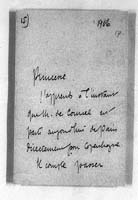 15)
1906
Princesse
J'apprends à l'instant
que M. de Courcel
part aujourd'hui de Paris
directement pour Copenhague
Il compte passer